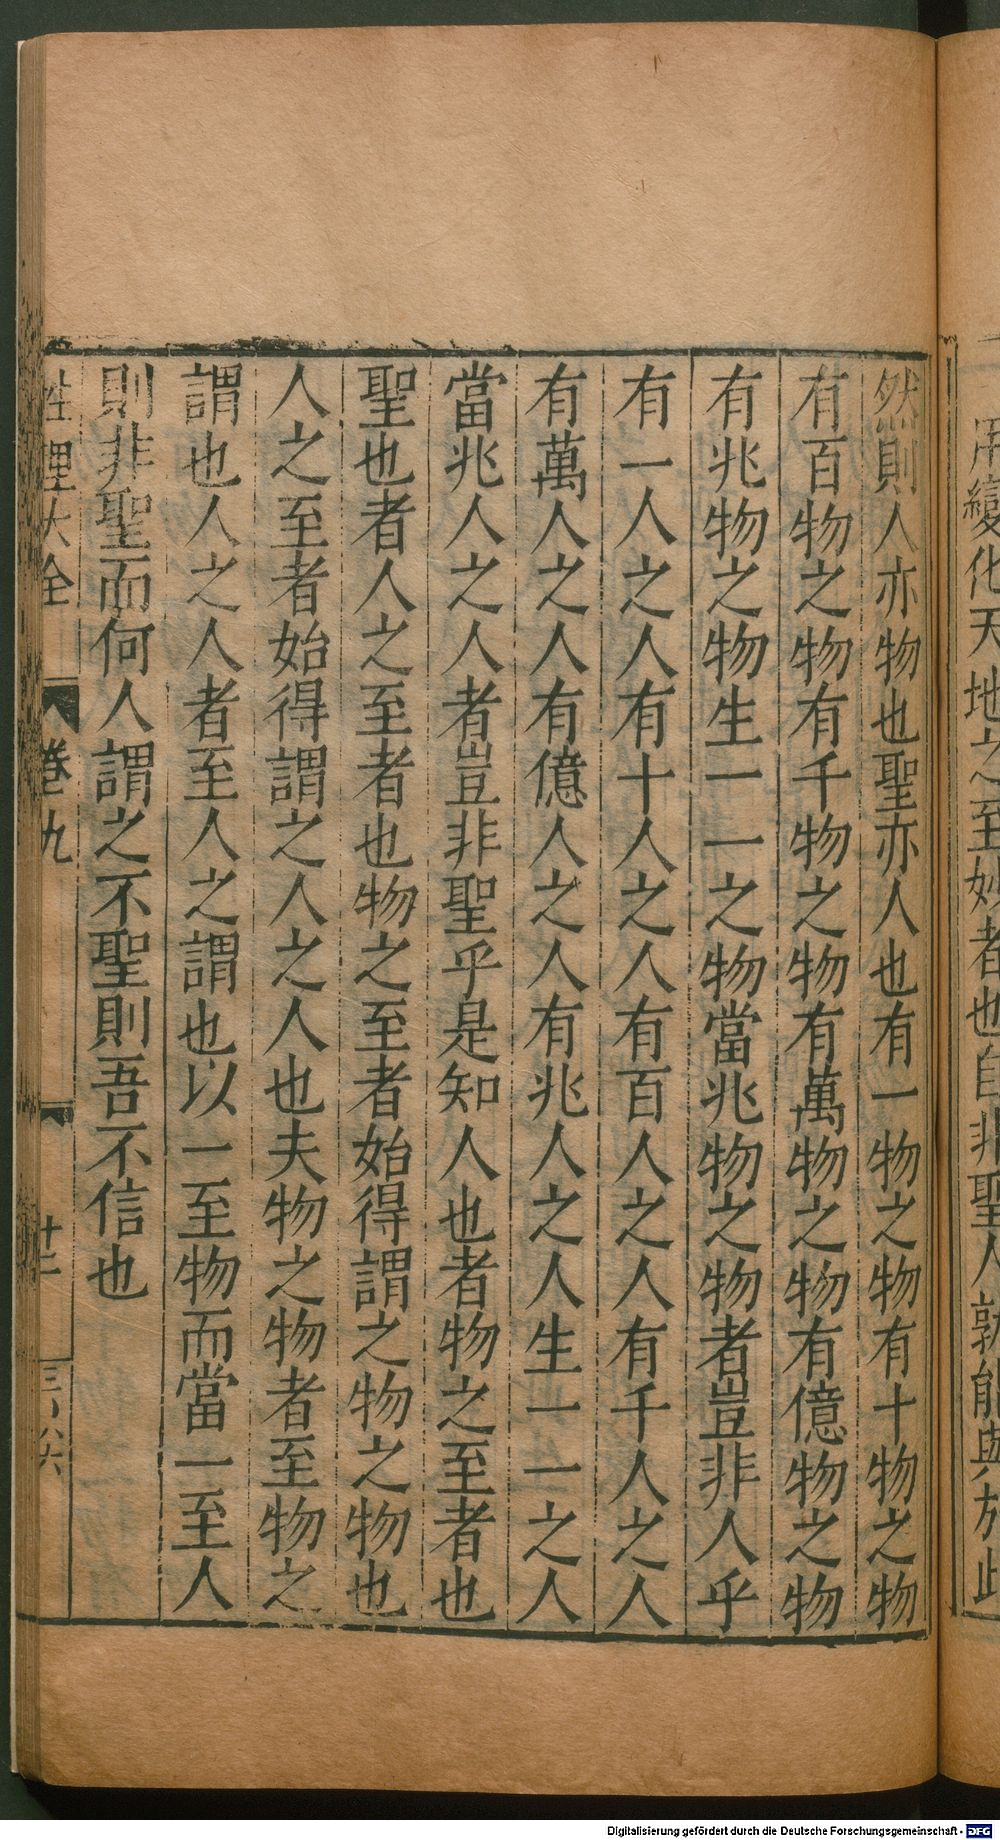 用變化天地之至妙者也自非聖人孰能與於此
然則人亦物也聖亦人也有一物之物有十物之物
有百物之物有千物之物有萬物之物有億物之物
有兆物之物生一一之物當兆物之物者豈非人乎
有一人之人有十人之人有百人之人有千人之人
有萬人之人有億人之人有兆人之人生一一之人
當兆人之人者豈非聖乎是知人也者物之至者也
聖也者人之至者也物之至者始得謂之物之物也
人之至者始得謂之人之人也夫物之物者至物之
謂也人之人者至人之謂也以一至物而當一至人
則非聖而何人謂之不聖則吾不信也
性理大全 卷九 十二
Digitalisierung gefördert durch die Deutsche Forschungsgemeinschaft - DFG